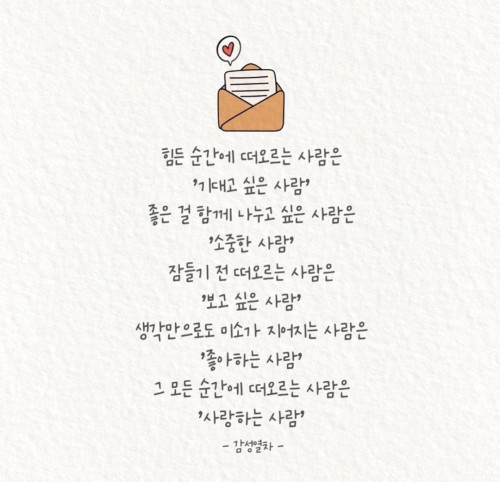 힘든 순간에 떠오르는 사람은
'기대고 싶은 사람'
좋은 걸 함께 나누고 싶은 사람은
'소중한 사람'
잠들기 전 떠오르는 사람은
'보고 싶은 사람'
생각만으로도 미소가 지어지는 사람은
'좋아하는 사람'
그 모든 순간에 떠오르는 사람은
'사랑하는 사람'
- 감성열차 -